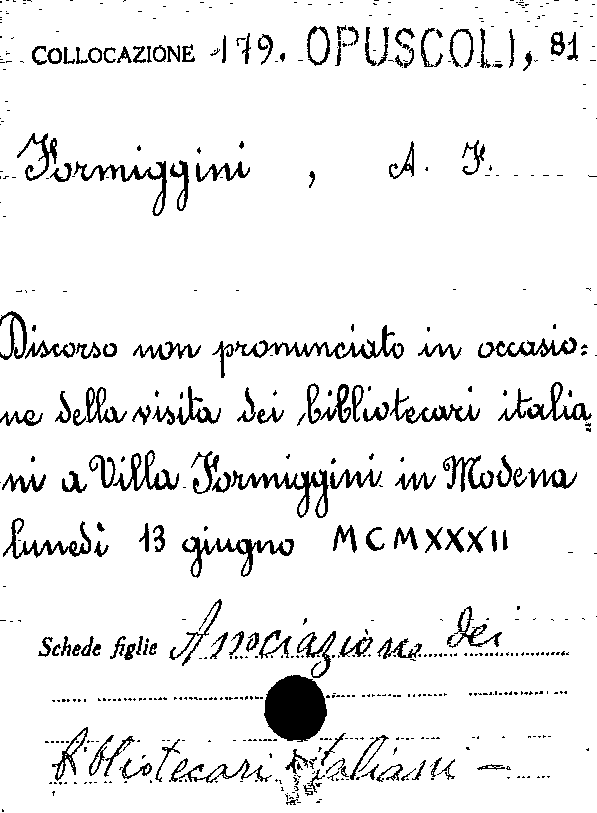 COLLOCAZIONE 179. OPUSCOLI, 81
Formiggini , A. F.
Discorso non pronunciato in occasio=
ne della visita dei bibliotecari italia=
ni a Villa Formiggini in Modena
lunedì 13 giugno MCMXXXII
Schede figlie Associazione dei
bibliotecari italiani -